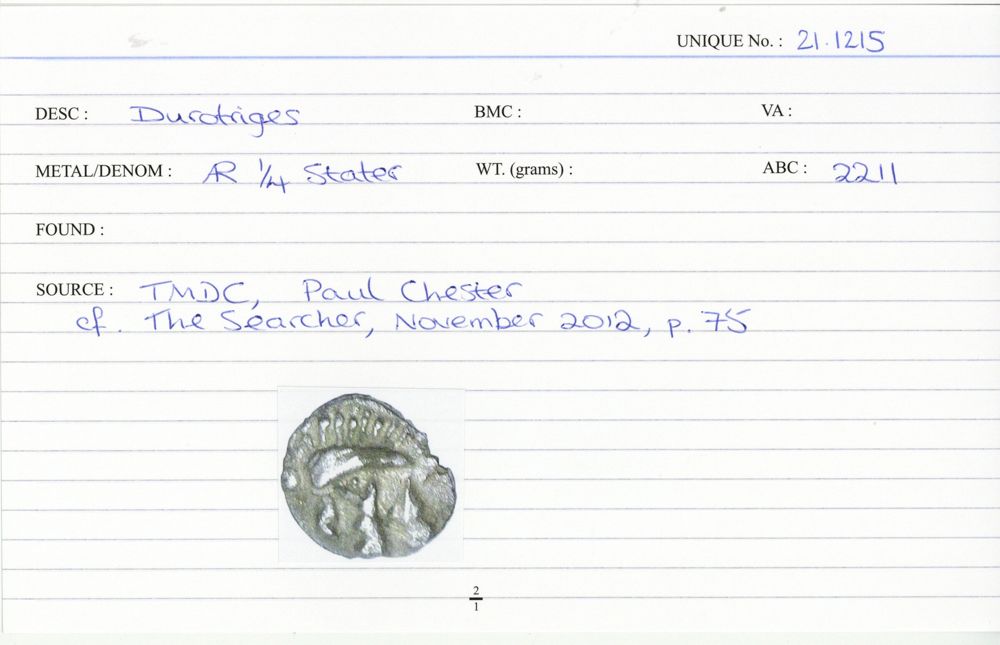 UNIQUE No. : 21.1215
DESC : Durotriges BMC : VA :
METAL/DENOM : AR 1/4 Stater WT. (grams) : ABC : 2211
FOUND :
SOURCE : TMDC, Paul Chester
cf. The Searcher, November 2012, p. 75
2
1